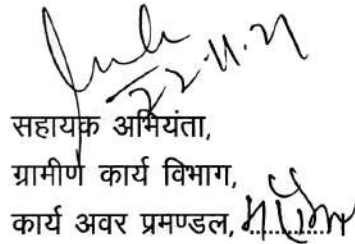 22.11.21
सहायक अभियंता,
ग्रामीण कार्य विभाग,
कार्य अवर प्रमण्डल,